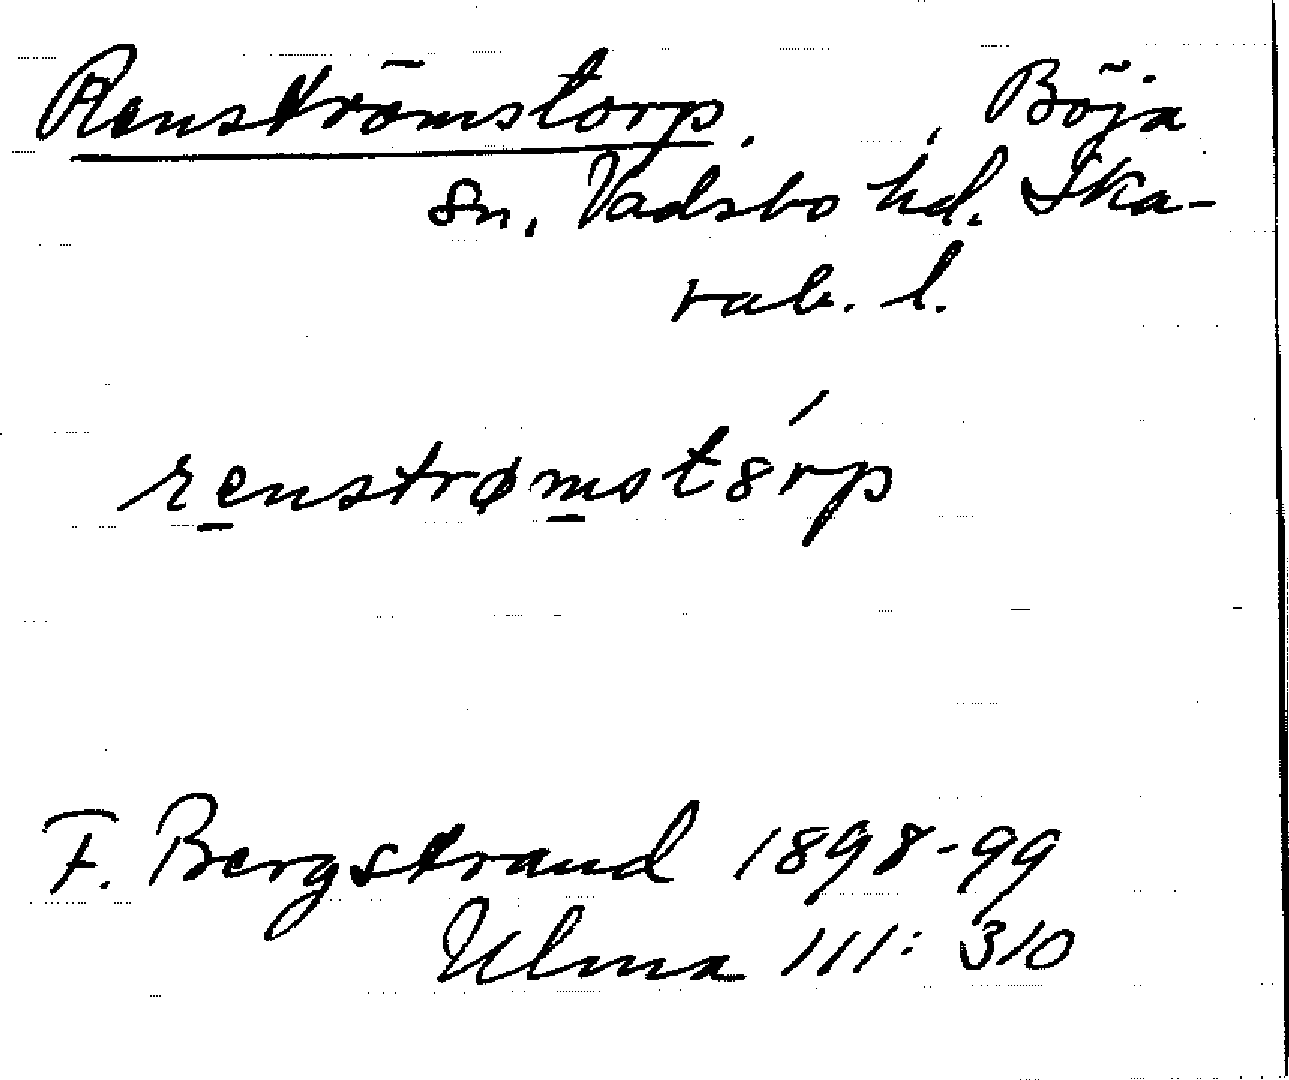 Renströmstorp. , Böja
sn, Vadsbo hd. Ska-
rab. l.
renstrømstȣrp
F. Bergstrand 1898-99
Ulma 111: 310